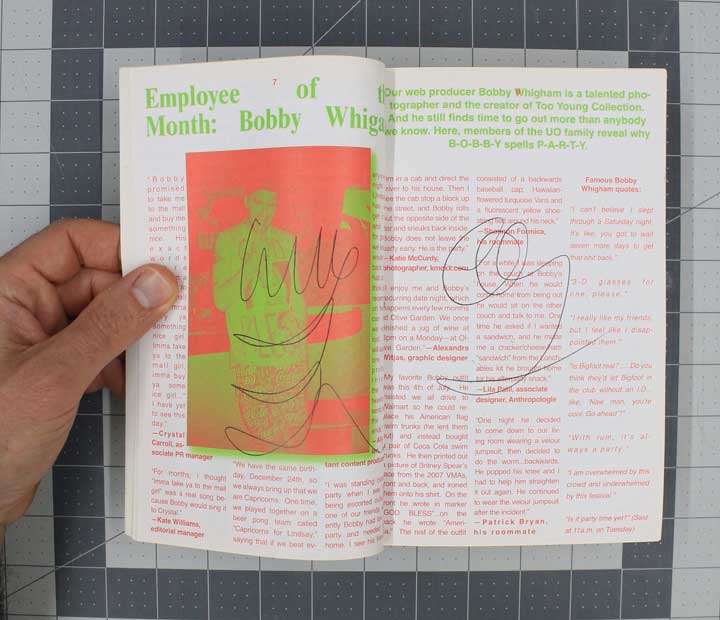 7
Employee of t
Month: Bobby Whiga
"Bobby
promised
to take me
to the mall
and buy me
something
nice. His
exact
words
ya
something
nice girl,
Imma take
ya to the
mall girl,
imma buy
ya some
ice girl..."
I have yet
to see this
day."
—Crystal
Carroll, as-
sociate PR manager
"For months, I though
"Imma take ya to the mal
girl" was a real song be-
cause Bobby would sing it
to Crystal."
—Kate Williams,
editorial manager
BLESS
"We have the same birth-
day, December 24th, so
we always bring up that we
are Capricorns. One time,
we played together on a
beer pong team called
"Capricorns for Lindsay,"
saying that if we beat ev-
tant content produc
"I was standing
party when I
being escorted
one of our friends
ently Bobby had
party and needed
home. I see
Our web producer Bobby Whigham is a talented pho-
tographer and the creator of Too Young Collection.
And he still finds time to go out more than anybody
we know. Here, members of the UO family reveal why
B-O-B-B-Y spells P-A-R-T-Y.
im in a cab and direct the
river to his house. Then I
ee the cab stop a block up
e street, and Bobby rolls
ut the opposite side of the
ar and sneaks back inside.
Bobby does not leave the
arty early. He is the party."
—Katie McCurdy,
photographer, kmcck.com
I enjoy me and Bobby's
recurring date night, which
happens every few months
at Olive Garden. We once
nished a jug of wine at
3pm on a Monday—at Ol-
ive Garden."—Alexandra
graphic designer
My favorite Bobby outfit
was this 4th of July. He
nsisted we all drive to
Walmart so he could re-
lace his American flag
wim trunks (he lent them
ut) and instead bought
pair of Coca Cola swim
unks. He then printed out
picture of Britney Spear's
ace from the 2007 VMAs,
ront and back, and ironed
em onto his shirt. On the
ront he wrote in marker
GOD BLESS"...on the
back he wrote "Ameri-
a." The rest of the outfit
consisted of a backwards
baseball cap, Hawaiian-
flowered turquoise Vans and
a fluorescent yellow shoe-
string tied around his neck."
—Shannon Fonnica,
his roommate
"For a while I was sleeping
on the couch at Bobby's
house. When he would
come home from being out
he would sit on the other
couch and talk to me. One
time he asked if I wanted
a sandwich, and he made
me a cracker/cheese/ham
"sandwich" from the Lunch-
ables kit he brought home
for his after-city snack."
—Lila associate
designer, Anthropologie
"One night he decided
to come down to our liv-
ing room wearing a velour
jumpsuit, then decided to
do the worm...backwards.
He popped his knee and I
had to help him straighten
it out again. He continued
to wear the velour jumpsuit
after the incident."
—Patrick Bryan,
his roommate
Famous Bobby
Whigham quotes:
"I can't believe I slept
through a Saturday night.
It's like, you got to wait
seven more days to get
that shit back."
"3-D glasses for
one, please."
"I really like my friends,
but I feel like I disap-
pointed them."
"Is Bigfoot real?.... Do you
think they'd let Bigfoot in
the club without an I.D...
like, 'Naw man, you're
cool. Go ahead'?"
"With rum, it's al-
ways a party."
"I am overwhelmed by this
crowd and underwhelmed
by this festival."
"Is it party time yet?" (Said
at 11a.m. on Tuesday)